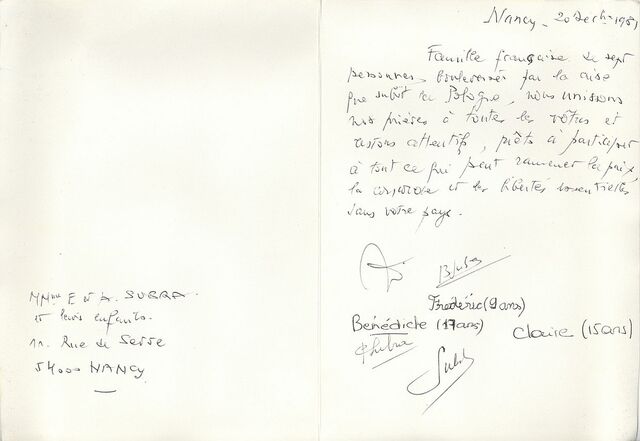 MMme E et A. SUBRA
et leurs enfants.
11. Rue de Serre
54000 NANCY
Nancy - 20 Décbre 1981
Famille française de sept
personnes, bouleversés par la crise
que subit la Pologne, nous unissons
nos prières à toutes les vôtres et
restons attentifs, prêts à participer
à tout ce qui peut ramener la paix,
la concorde et les libertés essentielles
dans votre pays.
Frédéric (9 ans)
Bénédicte (17 ans)
Claire (15 ans)